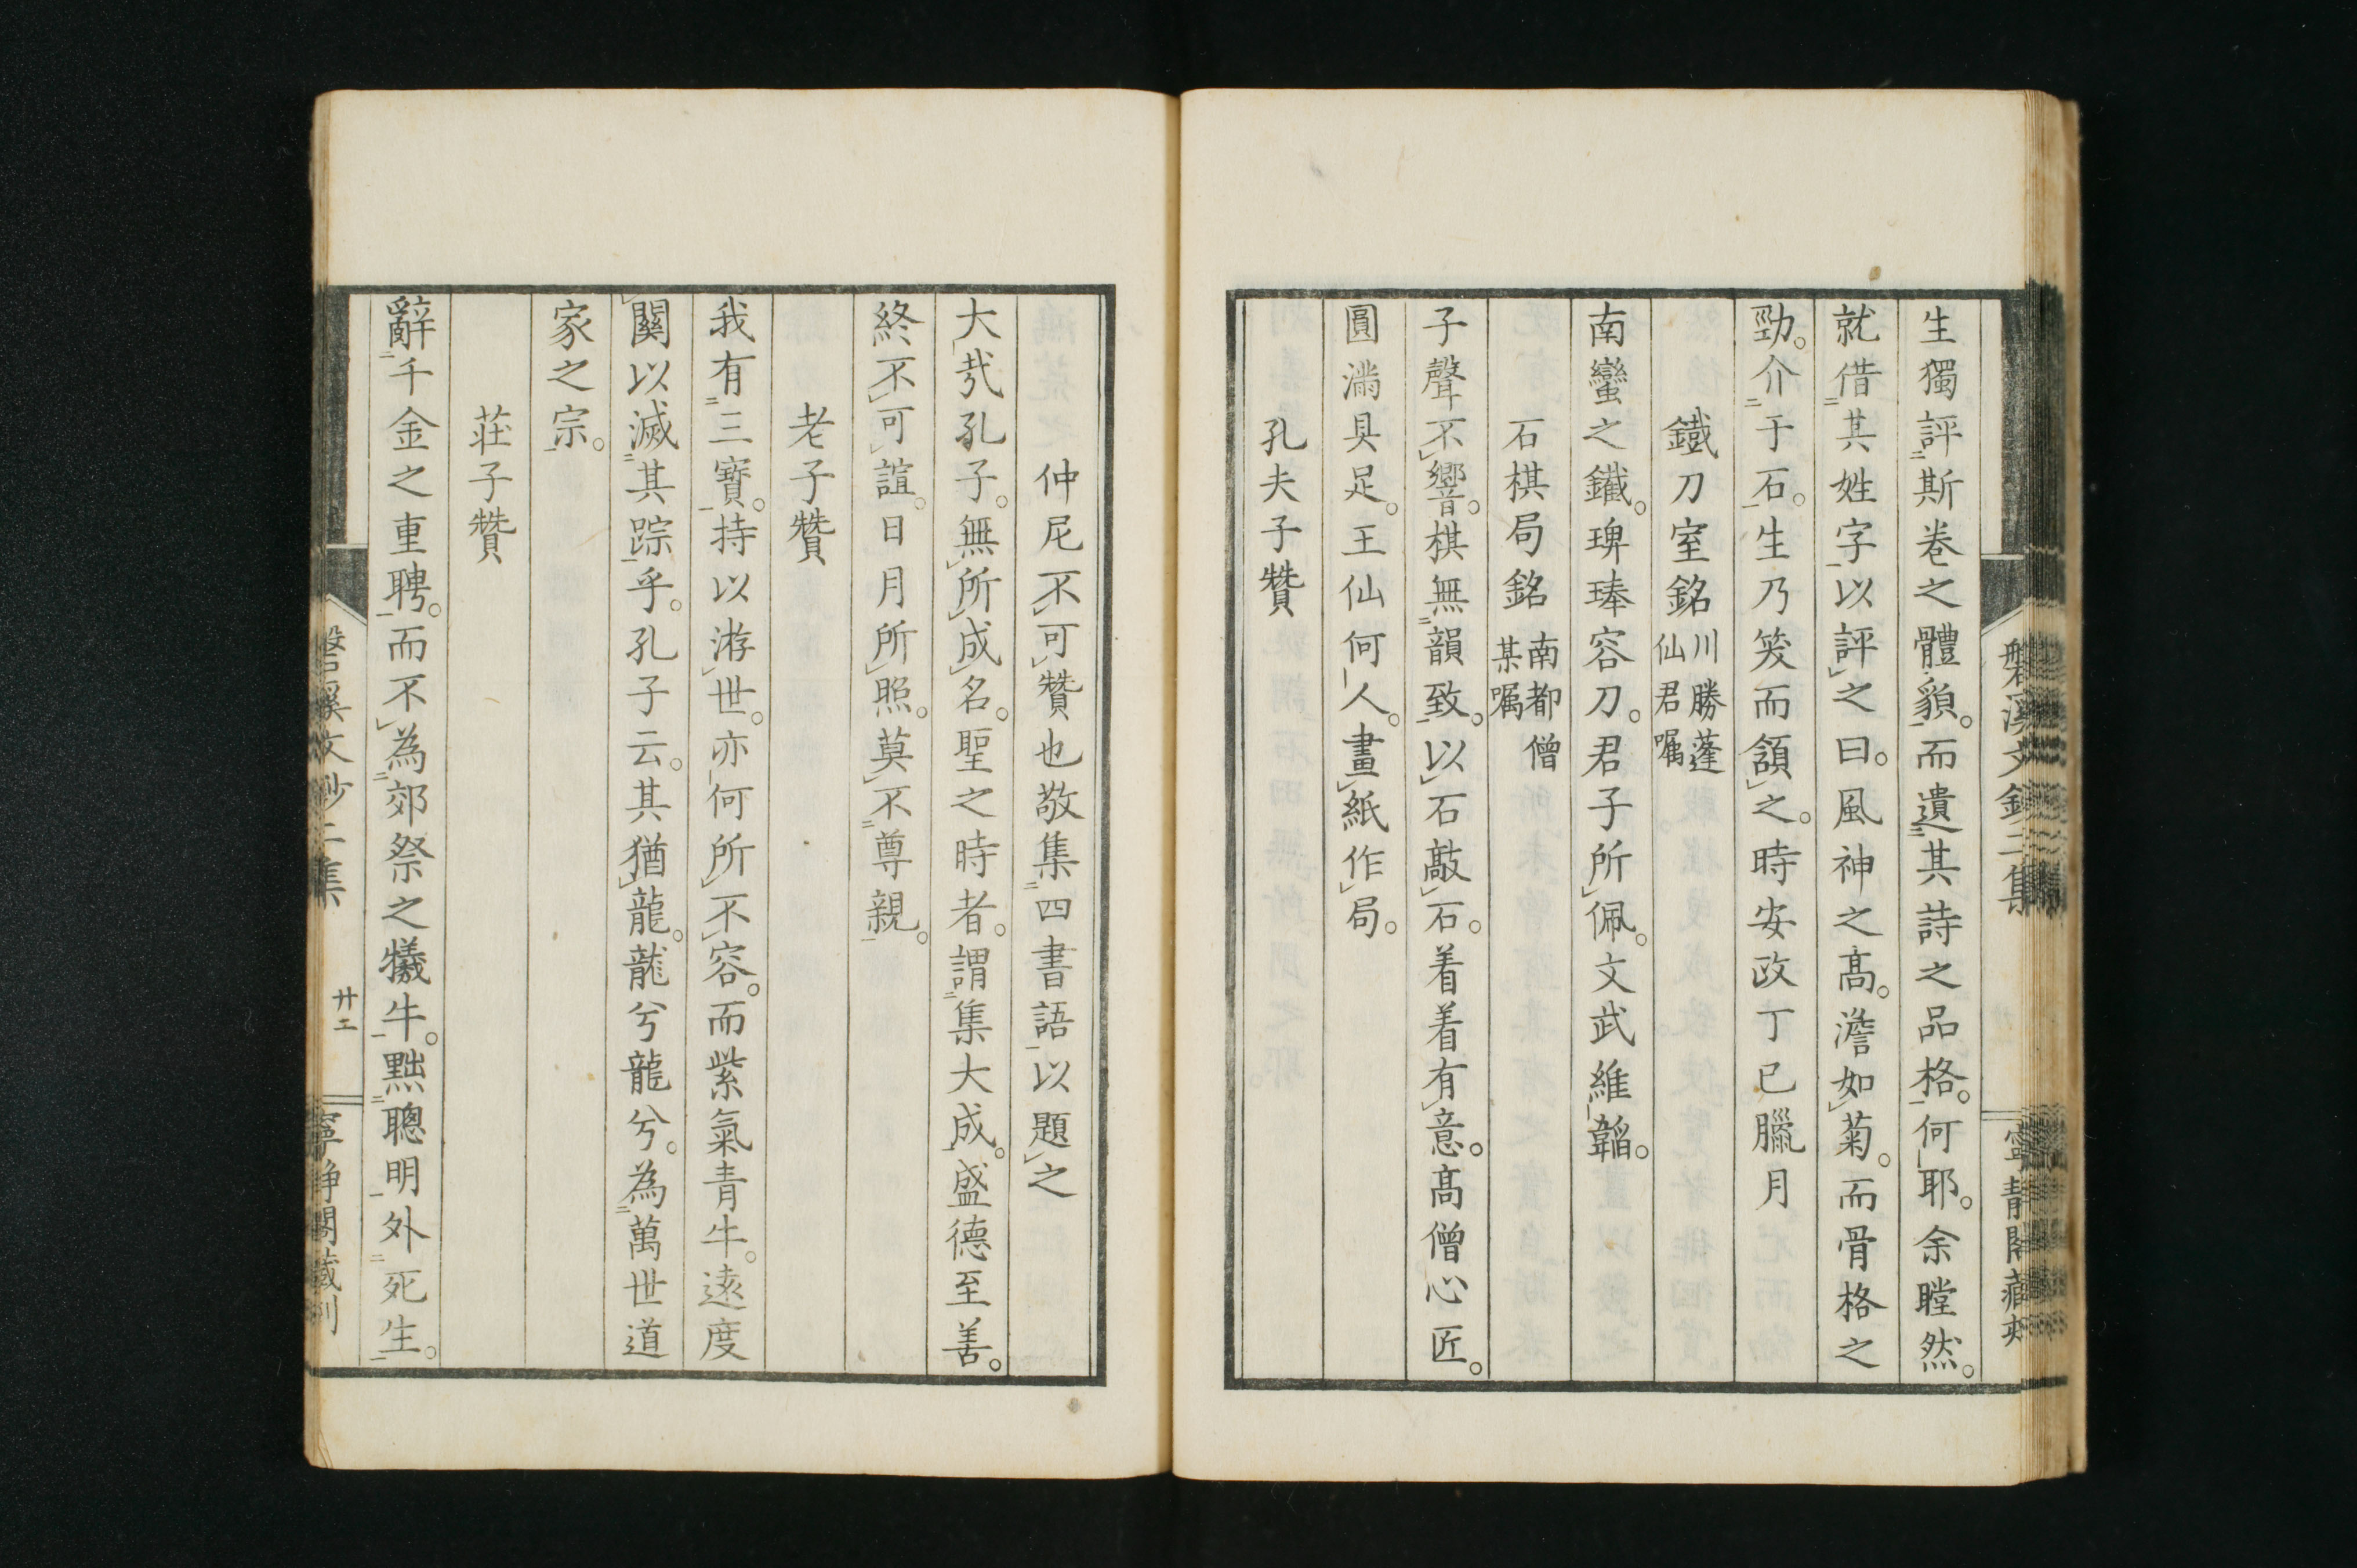 生獨評斯卷之體貌。而遺其詩之品格。何耶。余瞠然。
就借其姓字以評之曰。風神之高。澹如菊。而骨格之
勁。介于石。生乃笑而頷之。時安政丁巳臘月
鐵刀室銘 川勝蓬仙君嘱
南蠻之鐵。琕琫容刀。君子所佩。文武維韜。
石棋局銘 南都僧某嘱
子聲不響。棋無韻致。以石敲石。着着有意。高僧心匠。
圓滿具足。王仙何人。畫紙作局。
孔夫子贊
仲尼不可贊也敬集四書語以題之
大哉孔子。無所成名。聖之時者。謂集大成。盛德至善。
終不可諠。日月所照。莫不尊親。
老子贊
我有三寶。持以游世。亦何所不容。而紫氣青牛。遠度
關以滅其踪乎。孔子云。其猶龍。龍兮龍兮。為萬世道
家之宗。
莊子贊
辭千金之重聘。而不為郊祭之犧牛。黜聰明外死生。
磐溪文鈔二集
廿二
寧靜閣藏刊